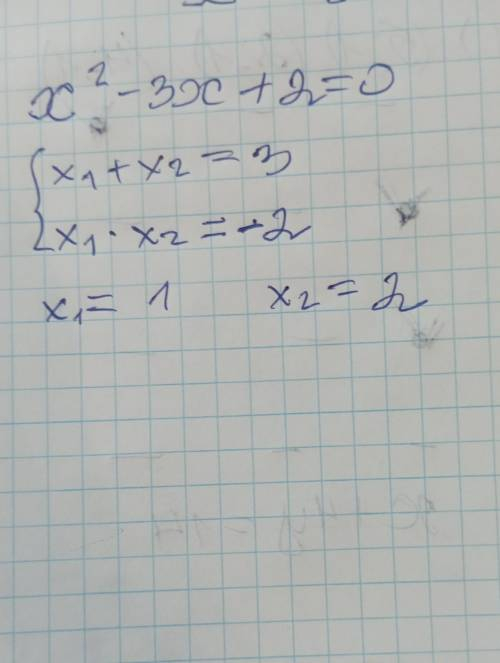 x² - 3x + 2 = 0
{ x₁ + x₂ = 3
x₁ · x₂ = -2
x₁ = 1 x₂ = 2